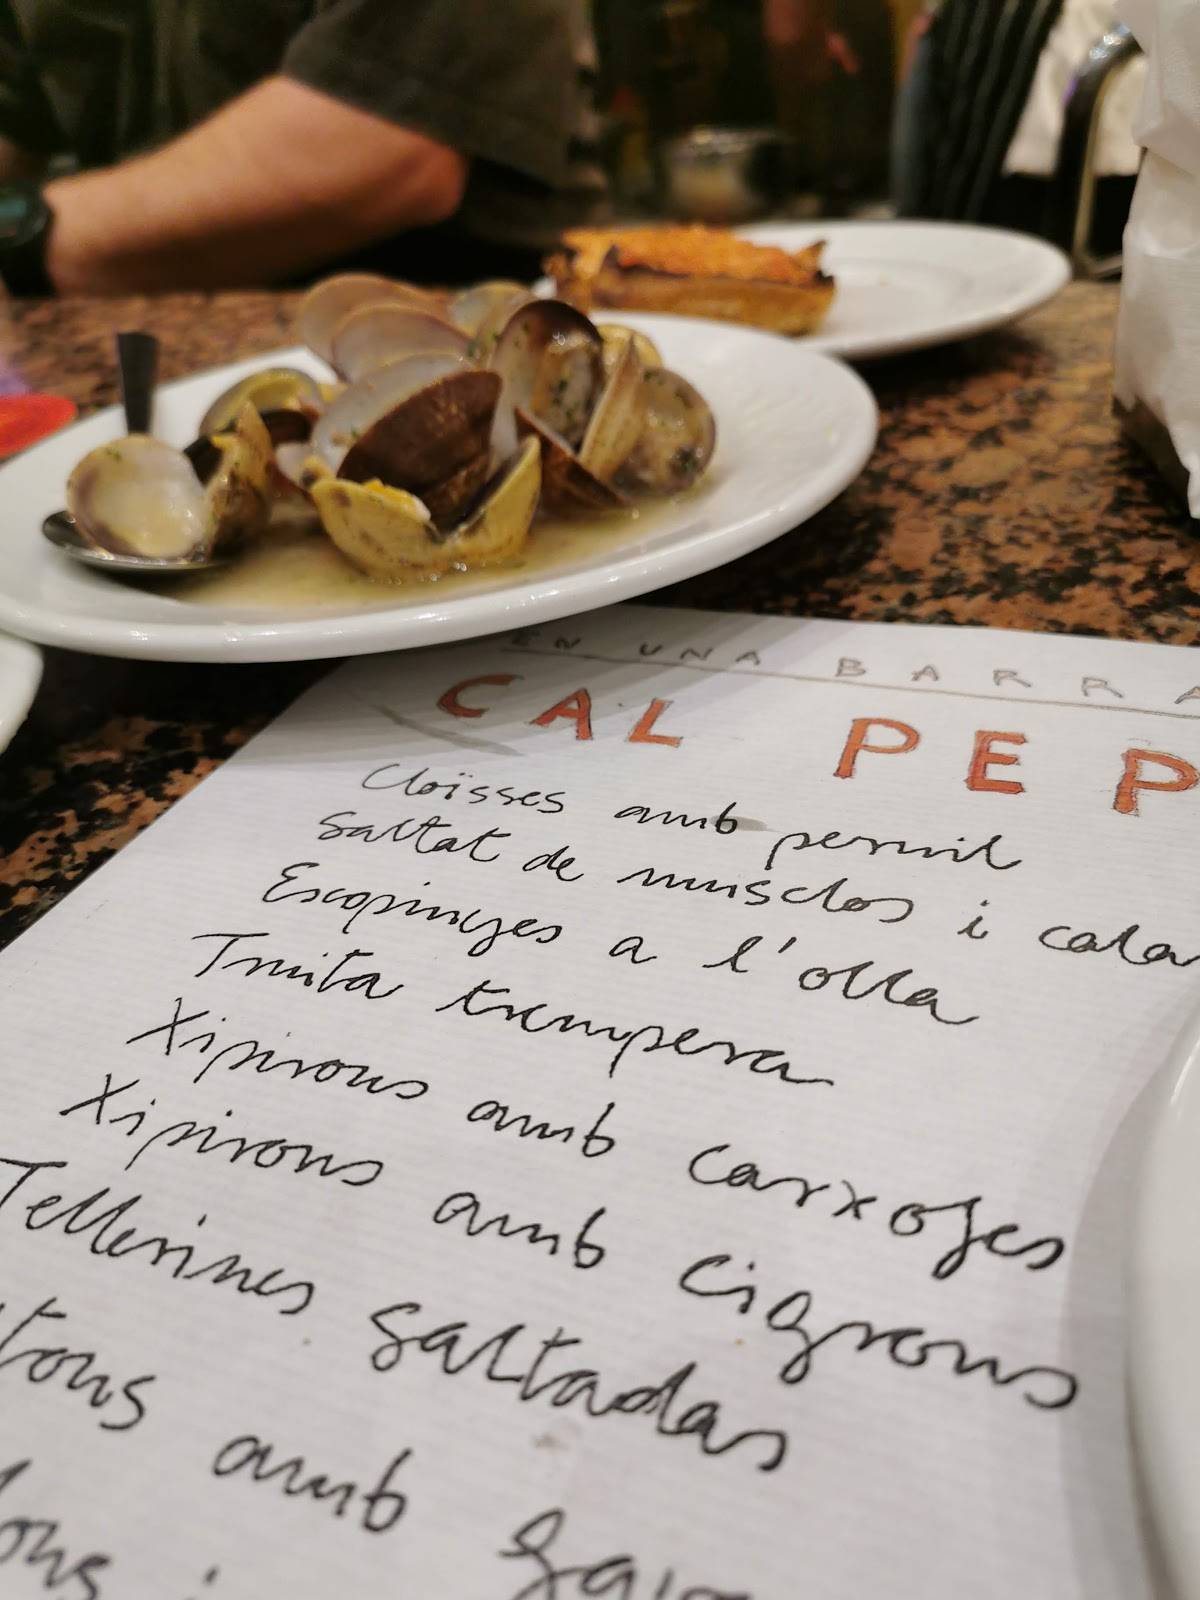 EN UNA BARRA
CAL PEP
Cloïsses amb pernil
Saltat de musclos i cala
Escopinyes a l'olla
Truita trempera
Xipirons amb carxofes
Xipirons amb cigrons
Tellerines saltadas
tons amb